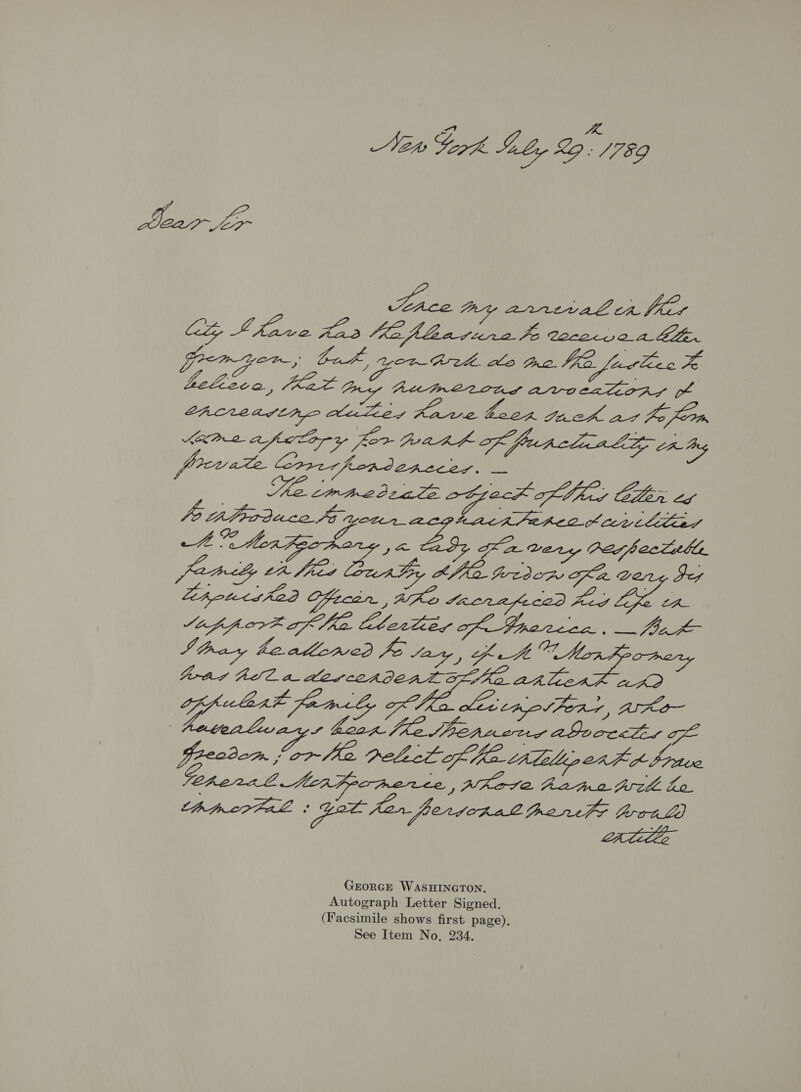 New York July 29th: 1789
Dear Sir
Since my arrival in this
City I have had the pleasure to receive a letter
from you; but, you will do me the justice to
believe, that my numerous avocations &
encreasing duties have been such as to form
some apology for want of punctuality in my
private Correspondencies. —
The immediate object of this letter is
to introduce to your acquaintance & civilities
Mrs. Montgomery, a Lady of a very respectable
family in this Country & the widow of a very dis
tinguished Officer, who sacraficed his life in
support of the liberties of America. — But
I may be allowed to say, if Mrs. Montgomery
was not a descendent of the antient and
oppulent family of the Livingstons, who
have always been the strenuous advocates of
freedom; or the relict of the intelligent & brave
General Montgomerie, whose name will be
immortal: yet her personal merits would
entitle
GEORGE WASHINGTON.
Autograph Letter Signed.
(Facsimile shows first page).
See Item No. 234.